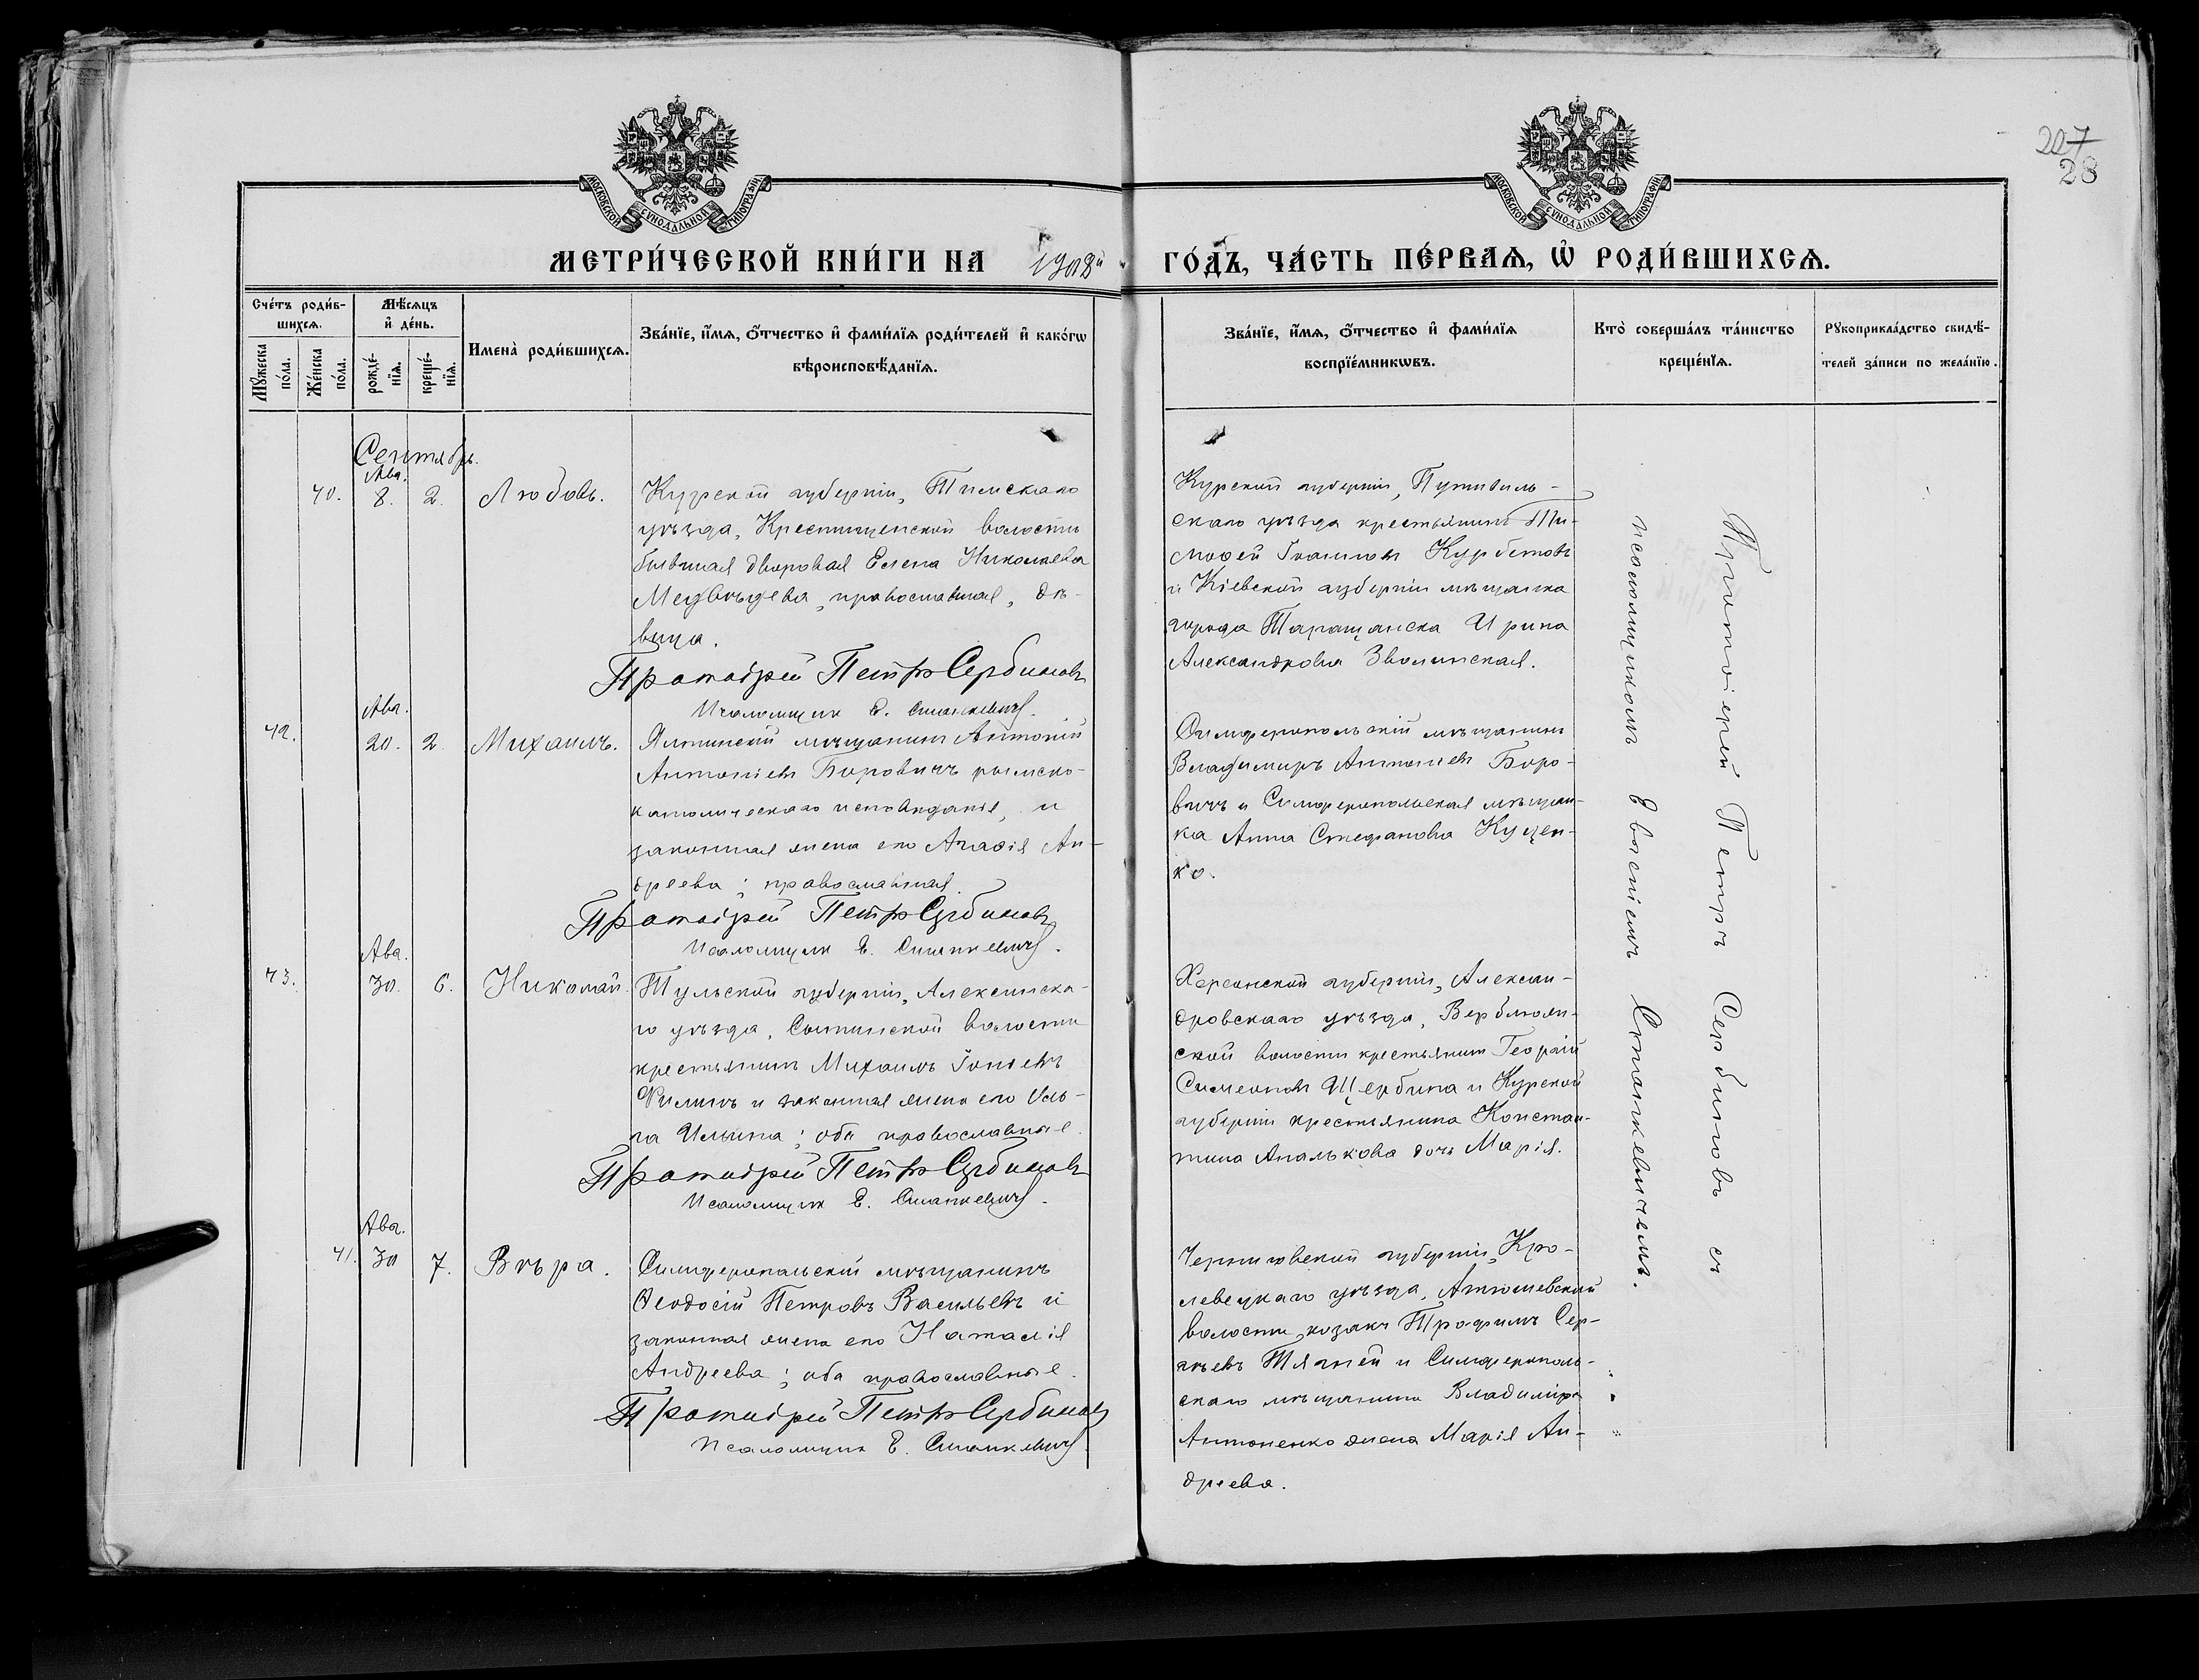 207
28
МОСКОВСКОЙ СѴНОДАЛЬНОЙ ТИПОГРАФІИ
МОСКОВСКОЙ СѴНОДАЛЬНОЙ ТИПОГРАФІИ
МЕТРИ́ЧЕСКОЙ КНИ́ГИ НА 1908й ГО́ДЪ, ЧА́СТЬ ПЕ́РВАѦ, Ѡ҆ РОДИ́ВШИХСѦ.
Сче́тъ роди́в-
шихсѧ.
Мꙋ́жеска по́ла.
Же́нска по́ла.
Мѣ́сѧцъ
и҆ де́нь.
рожде́-
нїѧ.
креще́-
нїѧ.
Имена̀ роди́вшихсѧ.
Зва́нїе, и҆́мѧ, ѻ҆́тчество и҆ фами́лїѧ роди́телей и҆ како́гѡ
вѣроисповѣ́данїѧ.
Зва́нїе, и҆́мѧ, ѻ҆́тчество и҆ фами́лїѧ
воспрїе́мникѡвъ.
Кто̀ соверша́лъ та́инство
креще́нїѧ.
Рꙋкоприкла́дство свидѣ́-
телей за́писи по жела́нїю.
Сентябрь.
Авг.
40. 8. 2. Любовь.
Курской губерніи, Тимскаго
уѣзда, Крестищенской волости
бывшая дворовая Елена Николаева
Медвѣдева, православная, дѣ-
вица.
Протоіерей Петръ Сербиновъ
Псаломщик Е. Станкевичъ.
Курской губерніи, Путивль-
скаго уѣзда крестьянинъ Ти-
моѳей Іоанновъ Курбетовъ
и Кіевской губерніи мѣщанка
города Таращанска Ирина
Александровна Зволинская.
Авг.
42. 20. 2. Михаилъ.
Ялтинскій мѣщанинъ Антоній
Антоніевъ Боровичъ римско-
католическаго исповѣданія, и
законная жена его Агаѳія Ан-
дреева; православная.
Протоіерей Петръ Сербиновъ
Псаломщик Е. Станкевичъ.
Симферопольскій мѣщанинъ
Владимиръ Антоніевъ Боро-
вичъ и Симферопольская мѣщан-
ка Анна Стефановна Куцен-
ко.
Авг.
43. 30. 6. Николай.
Тульской губерніи, Алексинска-
го уѣзда, Сотинской волости
крестьянинъ Михаилъ Іоніевъ
Филинъ и законная жена его Оль-
га Ильина; оба православные.
Протоіерей Петръ Сербиновъ
Псаломщик Е. Станкевичъ.
Херсонской губерніи, Алексан-
дровскаго уѣзда, Верблюж-
ской волости крестьянинъ Георгій
Симеоновъ Щербина и Курской
губерніи крестьянина Констан-
тина Апалькова дочь Марія.
Авг.
41. 30 7. Вѣра.
Симферопольскій мѣщанинъ
Ѳеодосій Петровъ Васильевъ и
законная жена его Наталія
Андреева; оба православные.
Протоіерей Петръ Сербиновъ
Псаломщик Е. Станкевичъ.
Черниговской губерніи, Кро-
левецкаго уѣзда, Атюшевской
волости, козакъ Трофимъ Сер-
гѣевъ Тягней и Симферополь-
скаго мѣщанина Владиміра
Антоненко жена Марія Ан-
дреева.
Протоіерей Петръ Сербиновъ съ
псаломщикомъ Евгеніемъ Станкевичемъ.